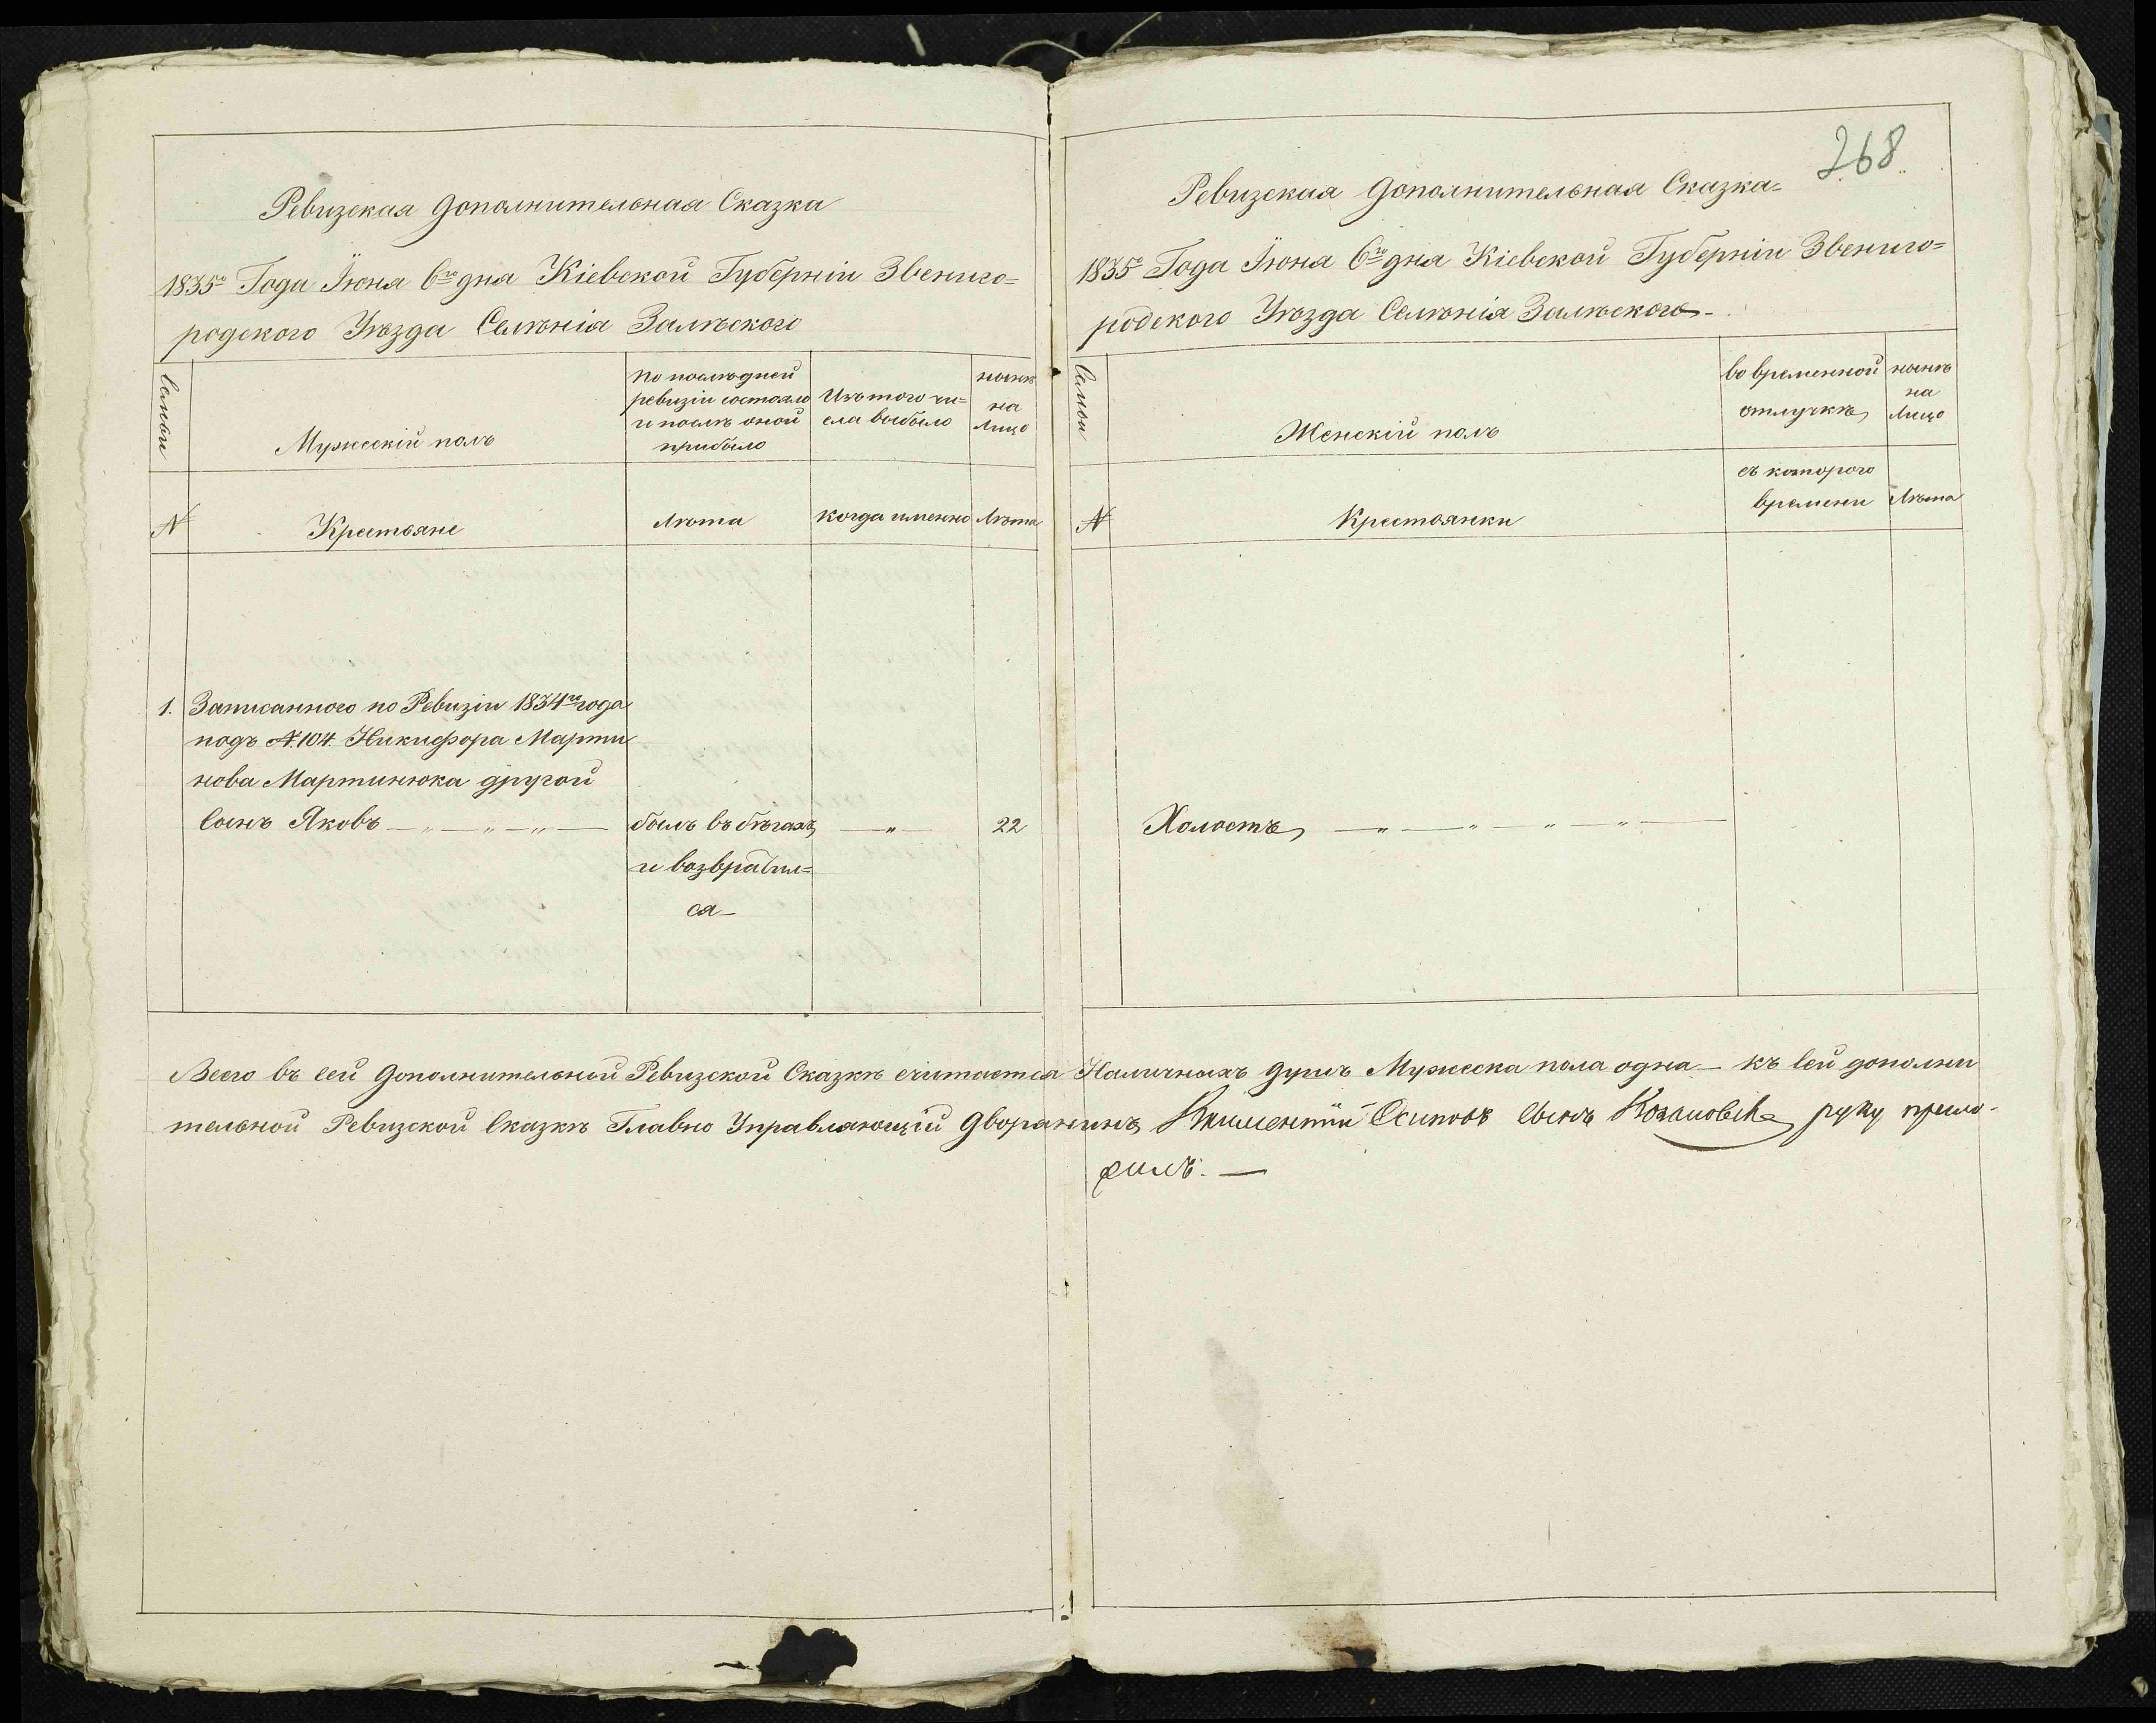 Ревизская Дополнительная Сказка
1835го Года Іюня 6го дня Кіевской Губерніи Звениго=
родского Уѣзда Селѣнія Залѣского
Семьи
Мужескій полъ
По послѣдней
ревизіи состояло
и послѣ оной
прибыло
Изъ того чи=
сла выбыло
нынѣ
на
Лицо
N
Крестьяне
Лѣта
когда именно
Лѣта
1.
Записанного по Ревизіи 1834го года
подъ N. 104. Никифора Марти
нова Мартинюка другой
Сынъ Яковъ — „ — „ — „ —
былъ въ бѣгахъ
и возвратил=
ся —
— „ —
22
268
Ревизская Дополнительная Сказка=
1835го Года Іюня 6го дня Кіевской Губерніи Звениго=
родского Уѣзда Селѣнія Залѣского —
Семьи
Женскій полъ
во временной
отлучкѣ
нынѣ
на
Лицо
N
Крестьянки
съ которого
времени
Лѣта
Холостъ — „ — „ — „ — „ —
Всего въ сей Дополнительной Ревизской Сказкѣ считается Наличныхъ душъ Мужеска пола одна — къ сей дополни
тельной Ревизской Сказкѣ Главно Управляющій Дворянинъ Климентій Осиповъ Сынъ руку прило-
жилъ. —